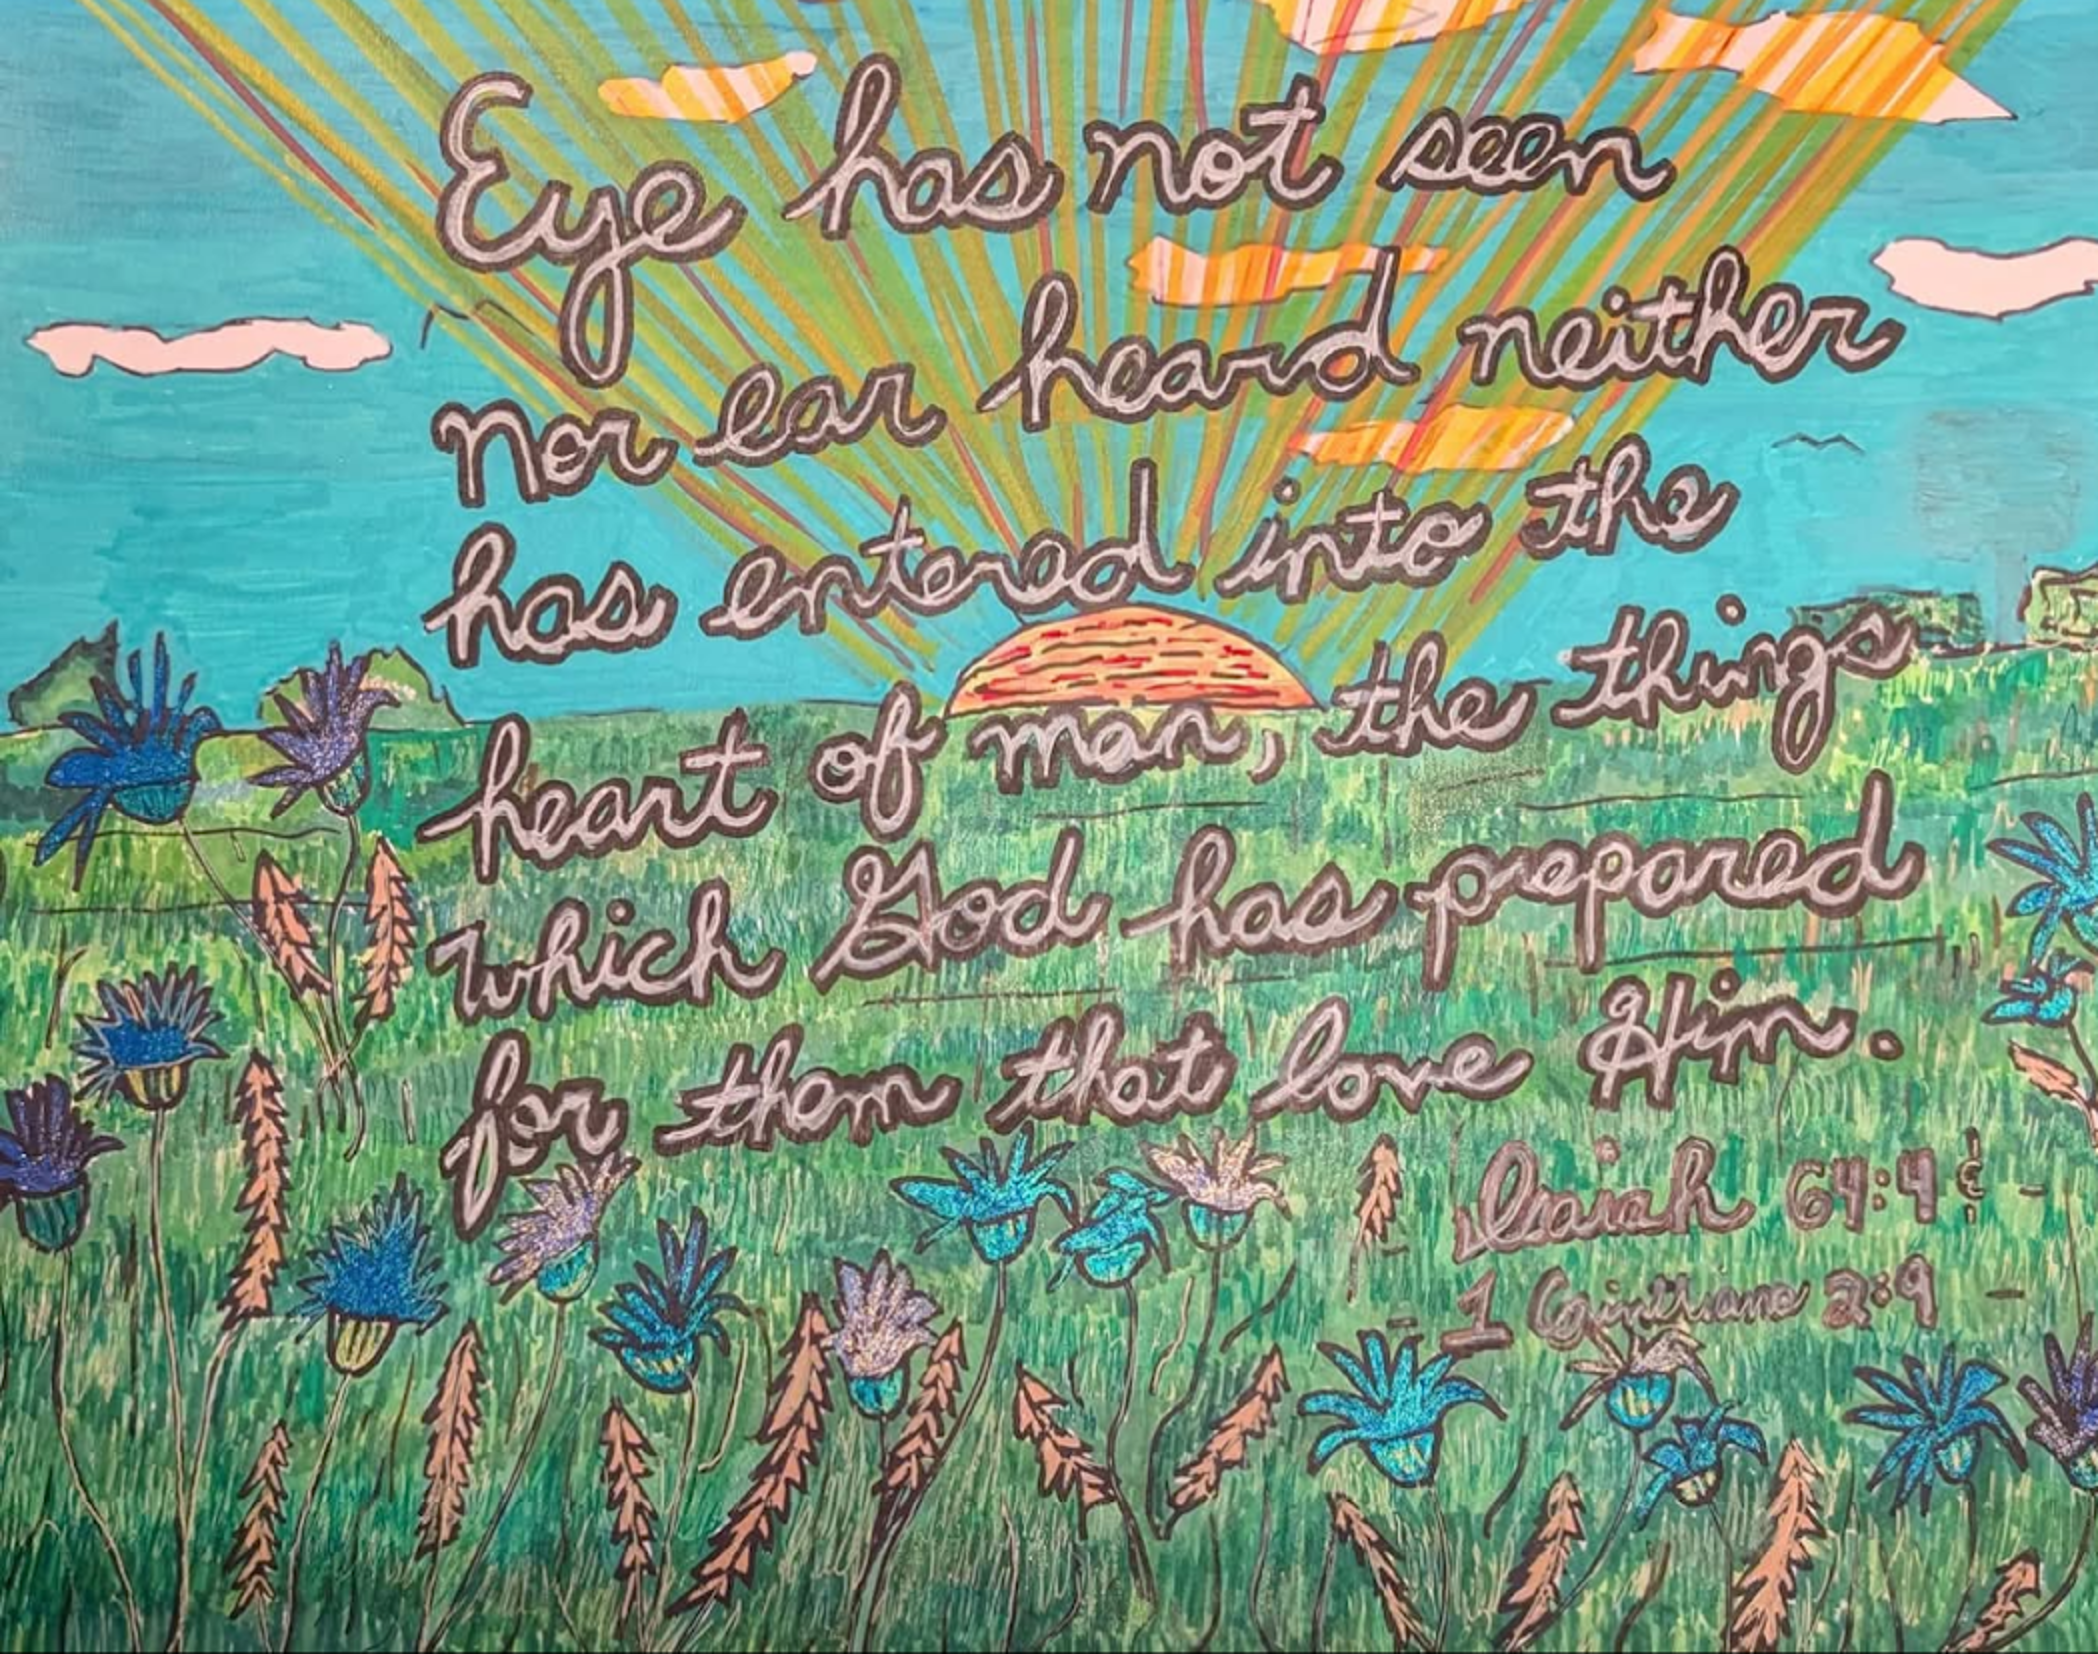 Eye has not seen
nor ear heard neither
has entered into the
heart of man, the things
which God has prepared
for them that love Him.
Isaiah 64:4 &
1 Corinthians 2:9